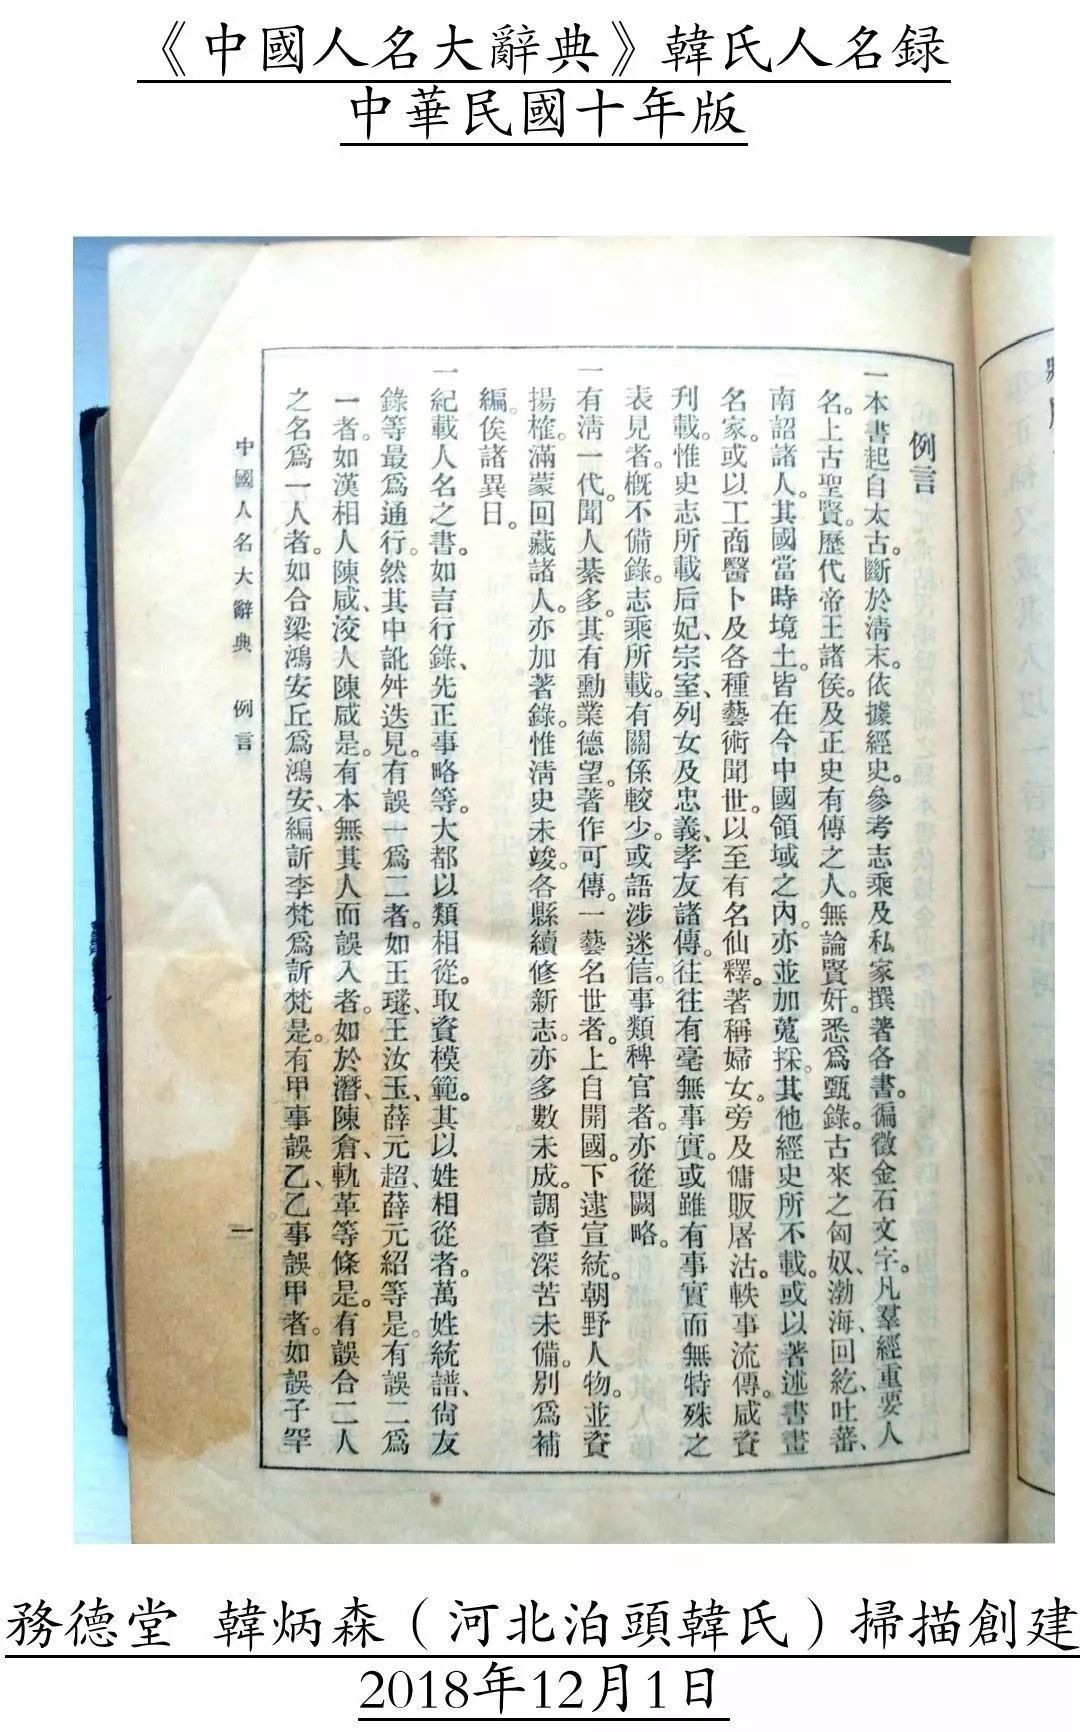 《中國人名大辭典》韓氏人名録
中華民國十年版
例言
一本書起自太古。斷於淸末。依據經史。參考志乘及私家撰著各書。徧徵金石文字。凡羣經重要人
名。上古聖賢。歷代帝王諸侯。及正史有傳之人。無論賢奸。悉爲甄錄。古來之匈奴、渤海、回紇、吐蕃、
南詔諸人。其國當時境土。皆在今中國領域之內。亦並加蒐採。其他經史所不載。或以著述書畫
名家。或以工商醫卜及各種藝術聞世。以至有名仙釋。著稱婦女。旁及傭販屠沽。軼事流傳。咸資
刋載。惟史志所載后妃、宗室、列女及忠義、孝友諸傳。往往有毫無事實。或雖有事實而無特殊之
表見者。槪不備錄。志乘所載。有關係較少。或語涉迷信。事類稗官者。亦從闕略。
一有淸一代。聞人綦多。其有勳業德望。著作可傳。一藝名世者。上自開國。下逮宣統。朝野人物。並資
揚榷。滿蒙回藏諸人。亦加著錄。惟淸史未竣。各縣續修新志。亦多數未成。調查深苦未備。別爲補
編。俟諸異日。
一紀載人名之書。如言行錄、先正事略等。大都以類相從。取資模範。其以姓相從者。萬姓統譜、尙友
錄等最爲通行。然其中訛舛迭見。有誤一爲二者。如王璲、王汝玉、薛元超、薛元紹等是。有誤二爲
一者。如漢相人陳咸、洨人陳咸是。有本無其人而誤入者。如於潛、陳倉、軌革等條是。有誤合二人
之名爲一人者。如合梁鴻安丘爲鴻安、編訢李梵爲訢梵是。有甲事誤乙、乙事誤甲者。如誤子罕
中國人名大辭典 例言
一
務德堂 韓炳森（河北泊頭韓氏）掃描創建
2018年12月1日